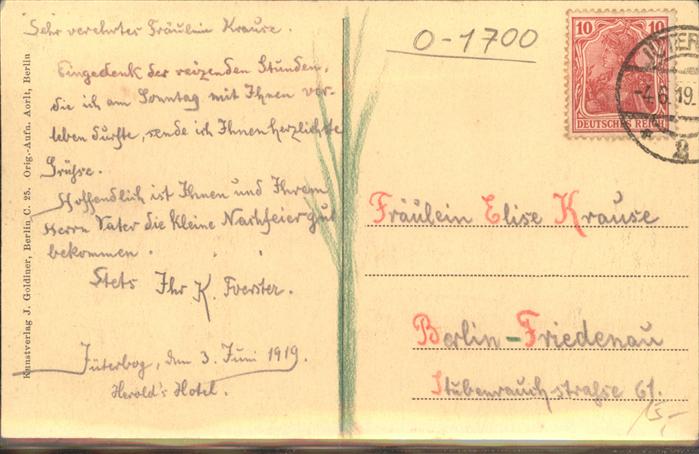 Sehr verehrtes Fräulein Krause.
Eingedenk der reizenden Stunden,
die ich am Sonntag mit Ihnen ver-
leben durfte, sende ich Ihnen herzlichste
Grüße.
Hoffendlich ist Ihnen und Ihrem
Herrn Vater die kleine Nachfeier gut
bekommen.
Stets Ihr K. Foerster.
Jüterbog, den 3. Juni 1919.
Herold's Hotel.
Kunstverlag J. Goldiner, Berlin C. 25. Orig.-Aufn. Aorlt, Berlin
0-1700
10 10
DEUTSCHES REICH
JÜTERB
-4.6.19.
* 2
Fräulein Elise Krause
Berlin-Friedenau
Stubenrauchstraße 61.
15,-